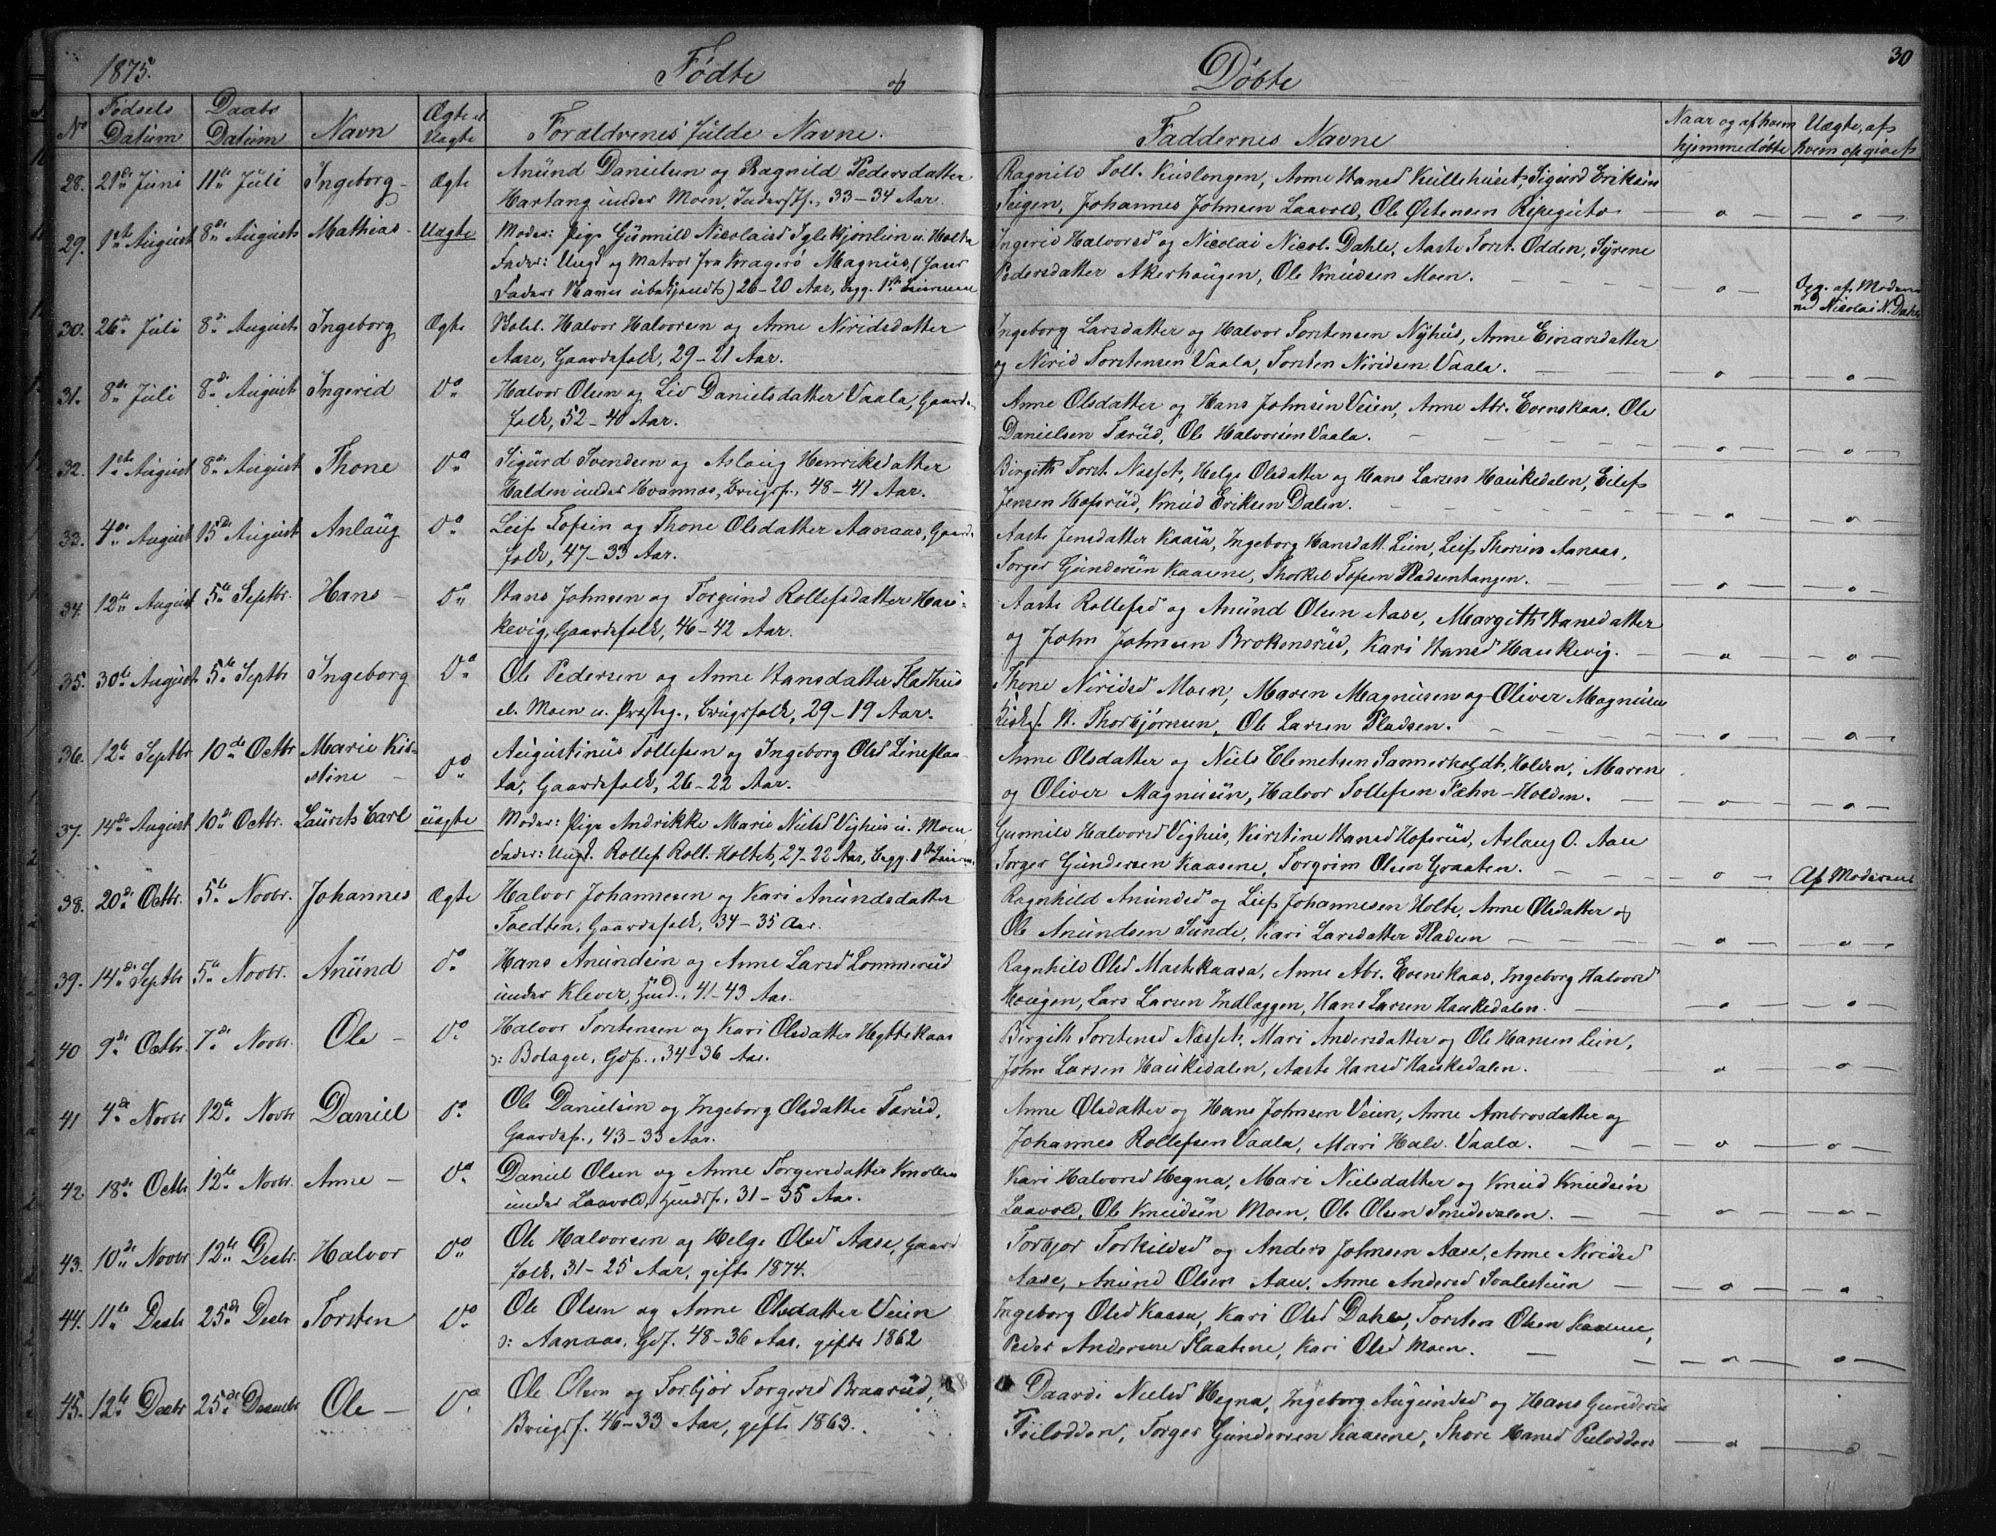 1875. Fødte og Døbte 30
No Fødsels Datum Daabs Datum Navn Ægte el. Uægte Forældrenes fulde Navne. Faddernes Navne Naar og af hvem hjemmedøbte Uægte, af hvem opgivet
28. 21de Juni 11te Juli Ingeborg Ægte Anünd Danielsen og Ragnild Pedersdatter
Hartang under Moen, Inderstf., 33–34 Aar.
Ragnild Toll. Anne Hansd Kullehuset, Sigurd Eriksen
Teigen, Johannes Johnsen Laavold, Ole Østensen — o — o —
29. 1ste August 8de August Mathias Uægte Moder: Pige Günnild Nicolaisd u. Holte
Fader: Ung. og Matros fra Kragerø Magnus, (Hans
Faders Navn ubekjendt) 26–20 Aar, begg. 1ste Leiermaal
Ingerid Halvorsd og Nicolai Nicol. Dahle, Aaste Torst. Odden, Syrene
Pedersdatter Akerhaugen, Ole Knudsen Moen. — o — Opg. af Moderen
og Nicolai N. Dahle
30. 26de Juli 8de August Ingeborg Ægte Halvor Halvorsen og Anne Niridsdatter
Aase, Gaardsfolk, 29–21 Aar.
Ingeborg Larsdatter og Halvor Torstensen Nyhus, Anne Einarsdatter
og Nirid Torstensen Vaala, Torsten Niridsen Vaala. — o — o —
31. 8de Juli 8de August Ingerid Do Halvor Olsen og Liv Danielsdatter Vaala, Gaards-
folk, 52–40 Aar.
Anne Olsdatter og Hans Johnsen Veien, Anne Abr. Evenskaas, Ole
Danielsen Tarud, Ole Halvorsen Vaala. — o — o —
32. 1ste August 8de August Thone Do Sigurd Svendsen og Aslaug Henriksdatter
Halden under Hvannes, Brugsf., 48–41 Aar.
Birgith Torst. Næsset, Helge Olsdatter og Hans Larsen Haukedalen, Eilef
Jensen Hofsrud, Knud Eriksen Dalen. — o — o —
33. 4de August 15de August Anlaug Do Leif Tofsen og Thone Olsdatter Aanaas, Gaard-
folk, 47–33 Aar.
Aaste Jensdatter Kaasa, Ingeborg Hansdatt. Lien, Leif Thorsen Aanaas,
Torger Gundersen Kaasene, Thorkel Tofsen Pladsentangen. — o — o —
34. 12te August 5te Septbr. Hans Do Hans Johnsen og Torgund Rollefsdatter Hau-
kevig, Gaardsfolk, 46–42 Aar.
Aaste Rollefsd og Anund Olsen Aase, Margith Hansdatter
og John Johnsen Brokensrud, Kari Hansd Haukevig. — o — o —
35. 30te August 5te Septbr Ingeborg Do Ole Pedersen og Anne Hansdatter Fladhus
el. Moen u. Præsteg., Brugsfolk, 29–19 Aar.
Thone Niridsd Moen, Maren Magnusen og Oliver Magnusen
H. Thorbjørnsen, Ole Larsen Pladsen. — o — o —
36. 12te Septbr 10de Octbr Marie Kir-
stine Do Augustinus Tollefsen og Ingeborg Olsd Lineflaa-
ta, Gaardsfolk, 26–22 Aar.
Anne Olsdatter og Niels Clemetsen Sannerholdt, Holden, Maren
og Oliver Magnusen, Halvor Tollefsen Tæhn–Holden. — o — o —
37. 14de August 10de Octbr. Laurits Carl uægte Moder: Pige Andrikke Marie Nielsd Vighus u. Moen
Fader: Ungk. Rollef Roll. Holtet, 27–22 Aar, begg. 1ste Leierm.
Gunnild Halvorsd Vighus, Kirstine Hansd Hofsrud, Aslaug O. Aase
Torger Gundersen Kaasene, Torgrim Olsen Graaten. — o — Af Moderen
38. 20de Octbr. 5te Novbr. Johannes Ægte Halvor Johannesen og Kari Anundsdatter
Toedten, Gaardsfolk, 34–35 Aar.
Ragnhild Anundsd og Leif Johannesen Holte, Anne Olsdatter og
Ole Anundsen Sunde, Kari Larsdatter Pladsen — o — o —
39. 14de Septbr 5te Novbr. Anünd Do Hans Anundsen og Anne Larsd Lommerud
under Klever, Husmd., 41–43 Aar.
Ragnhild Olsd Mastekaasa, Anne Abr. Evenskaas, Ingeborg Halvorsd
Haugen, Lars Larsen Indlæggen, Hans Larsen Haukedalen. — o — o —
40 9de Octbr. 7de Novbr. Ole Do Halvor Torstensen og Kari Olsdatter Hyttekaas
o: Bolager, Gdf., 34–36 Aar.
Birgith Torstensd Næsset, Mari Andersdatter og Ole Hansen Lien,
John Larsen Haukedalen, Aaste Hansd Haukedalen. o o —
41 4de Novbr. 12te Novbr Daniel Do Ole Danielsen og Ingeborg Olsdatter Tarud,
Gaardsf., 43–33 Aar.
Anne Olsdatter og Hans Johnsen Veien, Anne Ambrosdatter og
Johannes Rollefsen Vaala, Mari Halv. Vaala. — o — o —
42. 18de Octbr 12te Novbr. Anne Do Daniel Olsen og Anne Torgersdatter Knollen
under Laavold, Husdsf., 31–35 Aar.
Kari Halvorsd Hegna, Mari Nielsdatter og Knud Knudsen
Laavold, Ole Knudsen Moen, Ole Olsen Smidsdalen. — o — o —
43. 10de Novbr 12te Decbr. Halvor Do Ole Halvorsen og Helge Olsd Aase, Gaard-
folk, 31–25 Aar, gifte 1874.
Torbjør Torkildsd og Anders Johnsen Aase, Anne Niridsd
Aase, Anund Olsen Aase, Anne Andersd Svalestuen — o — o —
44. 11te Decbr 25de Decbr Torsten Do Ole Olsen og Anne Olsdatter Veien
o: Aanaas, Gdf. 48–36 Aar, gifte 1862
Ingeborg Olsd Kaasa, Kari Olsd Dahle, Torsten Olsen Kaasene,
Peder Andersen Flaatene, Kari Olsd Moen. — o — o —
45. 12te Decbr 25de Decembr Ole Do Ole Olsen og Torbjør Torgersd Braarud,
Brugsf. 46–33 Aar, gifte 1863.
Daardi Nielsd Hegna, Ingeborg Augundsd og Hans Gundersen
Torger Gundersen Kaasene, Thore Hansd — o — o —